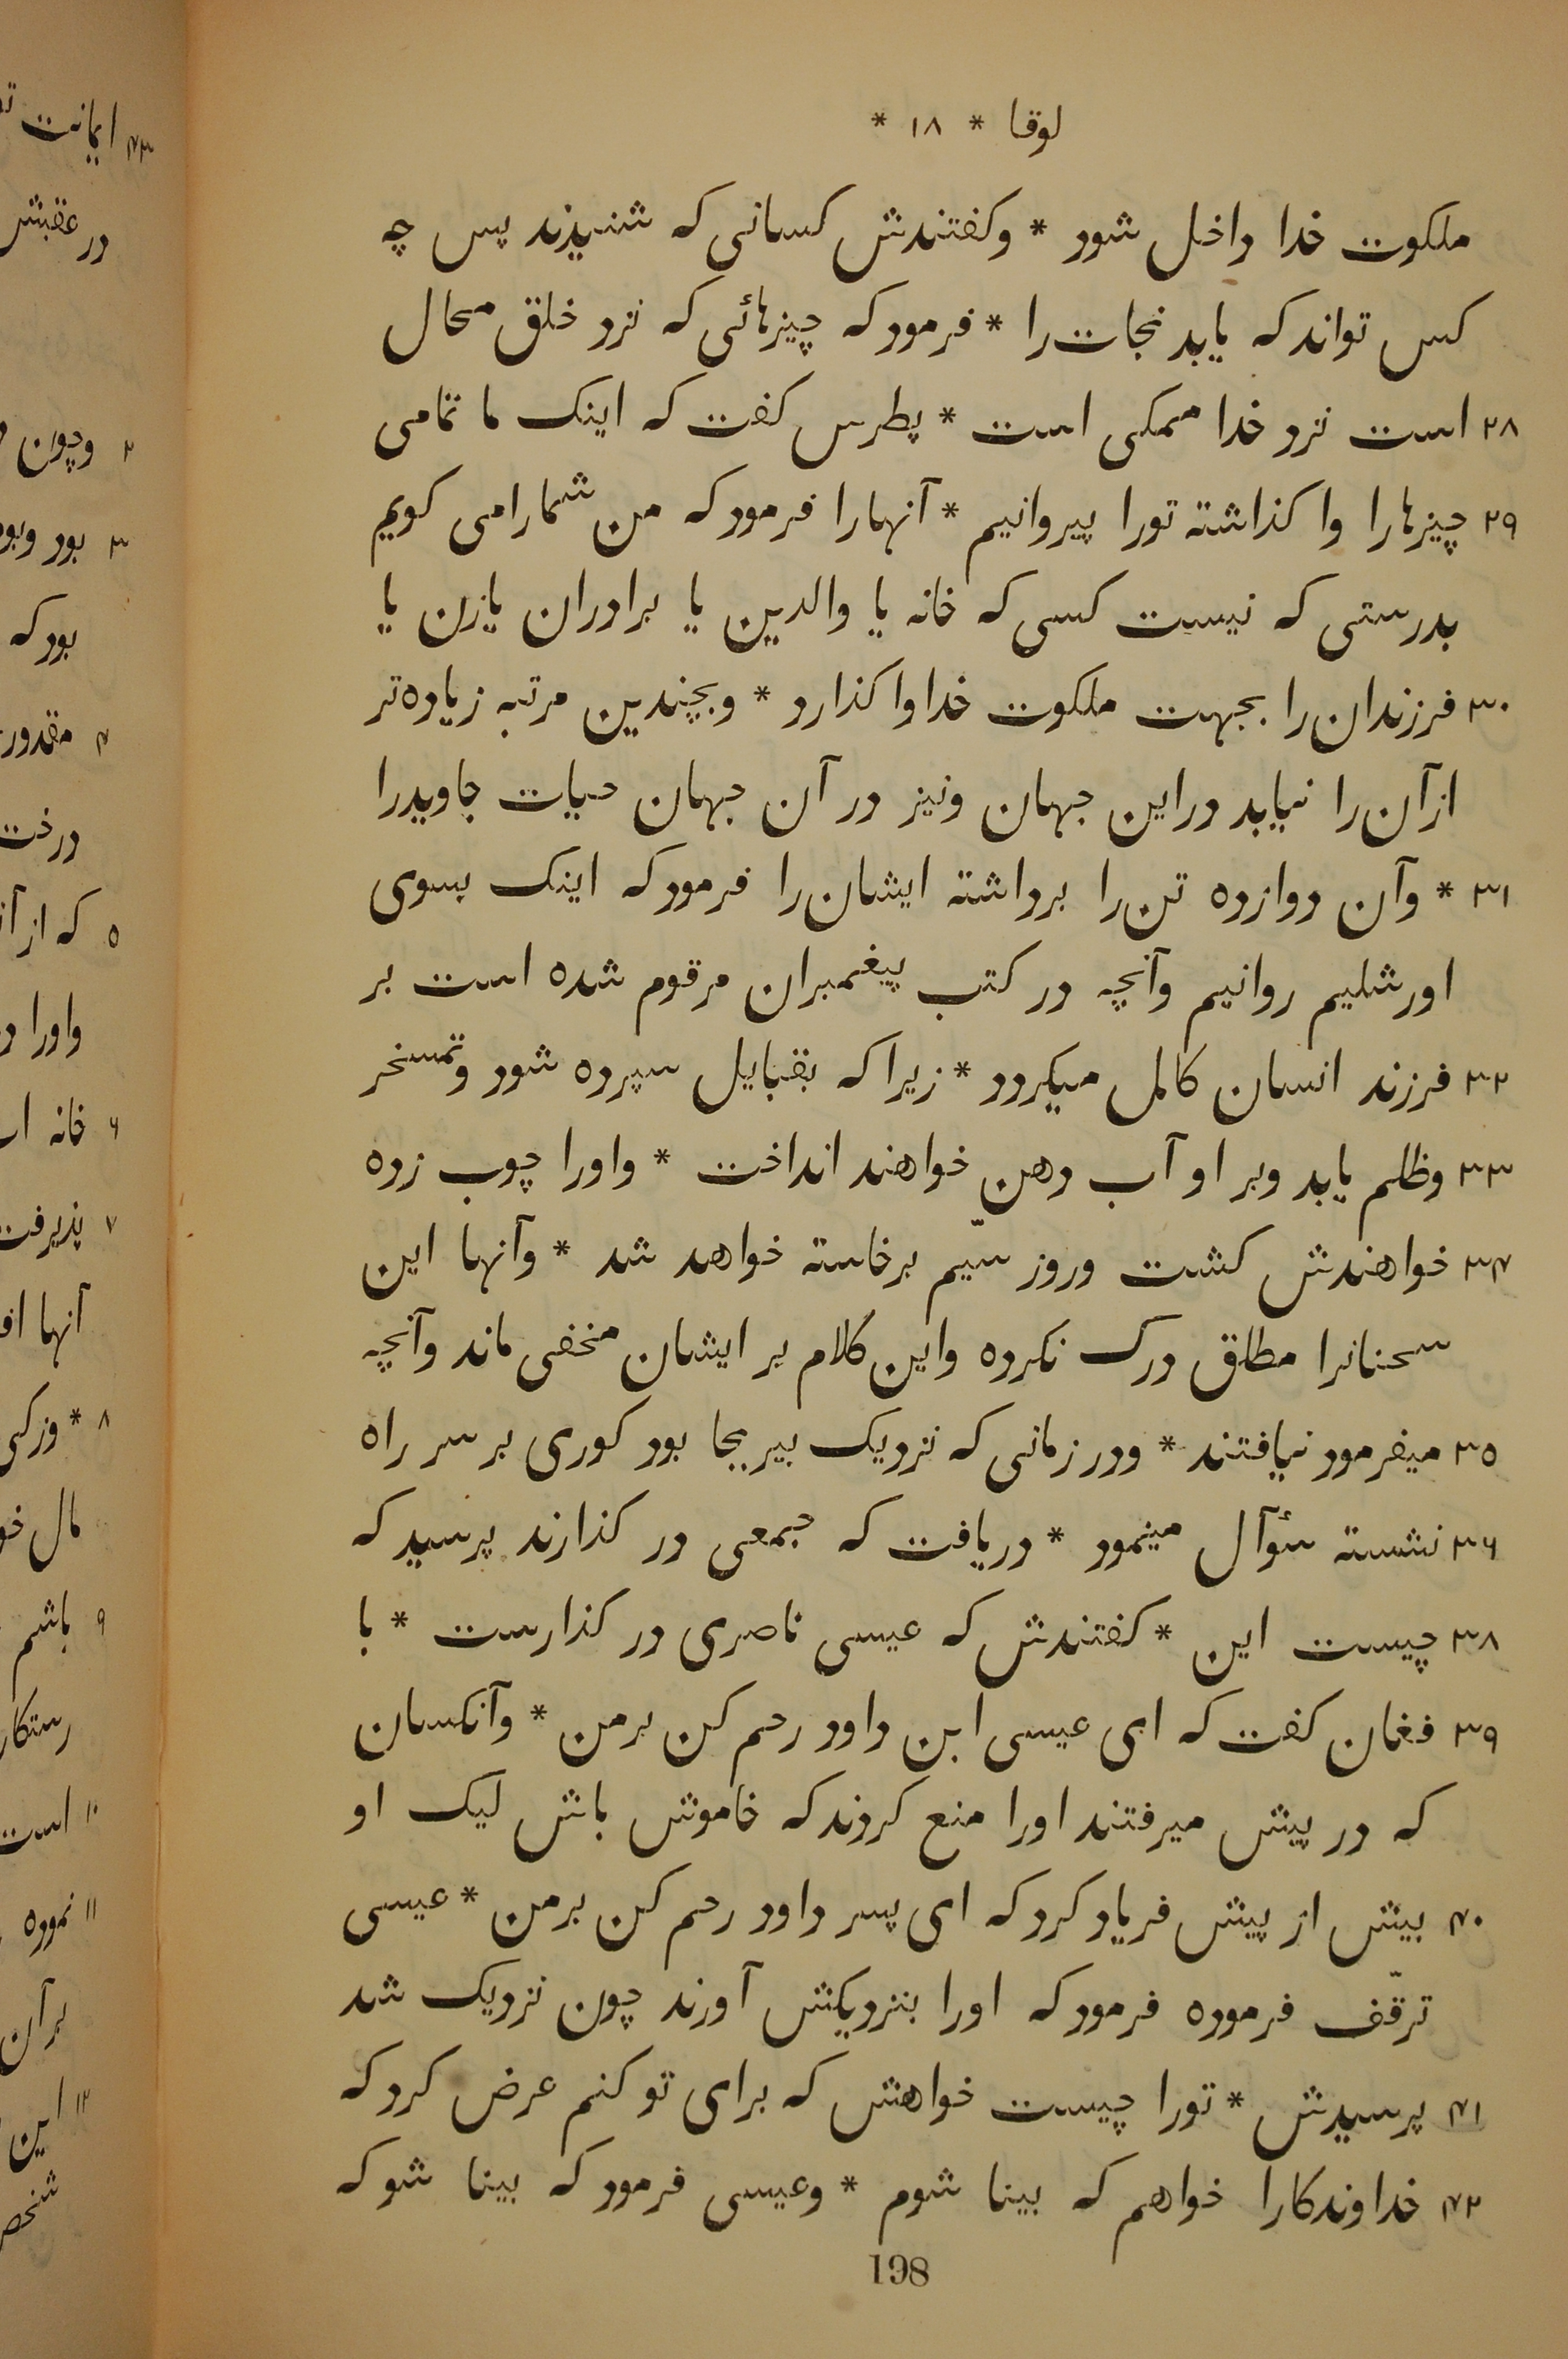 لوقا * ۱۸ *
ملکوت خدا داخل شود * وکفتندش کسانی که شنیدند پس چه
کس تواند که یابد نجات را * فرمود که چیزهائی که نزد خلق محال
۲۸ است نزد خدا ممکن است * پطرس کفت که اینک ما تمامی
۲۹ چیزهارا وا کذاشته تورا پیروانیم * آنهارا فرمود که من شمارا می کویم
بدرستی که نیست کسی که خانه یا والدین یا برادران یا زن یا
۳۰ فرزندان را بجهت ملکوت خدا وا کذارد * وبچندین مرتبه زیاده تر
از آن را نیابد در این جهان ونیز در آن جهان حیات جاوید را
۳۱ * وآن دوازده تن را برداشته ایشان را فرمود که اینک بسوی
اورشلیم روانیم وآنچه در کتب پیغمبران مرقوم شده است بر
۳۲ فرزند انسان کامل میکردد * زیرا که بقبایل سپرده شود وتمسخر
۳۳ وظلم یابد وبر او آب دهن خواهند انداخت * واورا چوب زده
۳۴ خواهندش کشت وروز سیّم برخاسته خواهد شد * وآنها این
سخنانرا مطلق درک نکرده واین کلام بر ایشان مخفی ماند وآنچه
۳۵ میفرمود نیافتند * ودر زمانی که نزدیک بیریجا بود کوری بر سر راه
۳۶ نشسته سؤآل مینمود * دریافت که جمعی در کذارند پرسید که
۳۸ چیست این * کفتندش که عیسی ناصری در کذارست * با
۳۹ فغان کفت که ای عیسی ابن داود رحم کن بر من * وآنکسان
که در پیش میرفتند اورا منع کردند که خاموش باش لیک او
۴۰ بیش از پیش فریاد کرد که ای پسر داود رحم کن بر من * عیسی
ترقّف فرموده فرمود که اورا بنزدیکش آورند چون نزدیک شد
۴۱ پرسیدش * تورا چیست خواهش که برای تو کنم عرض کرد که
۴۲ خداوندکارا خواهم که بینا شوم * وعیسی فرمود که بینا شو که
198
۴۳ ایمانت
در عقبش
۲ وچون
۳ بود وبود
بود که
۴ مقدور
درخت
۵ که از
واورا
۶ خانه
۷ پذیرفت
آنها
۸ *
مال
۹ باشم
۱۰ است
۱۱ نموده
بر آن
۱۲ این